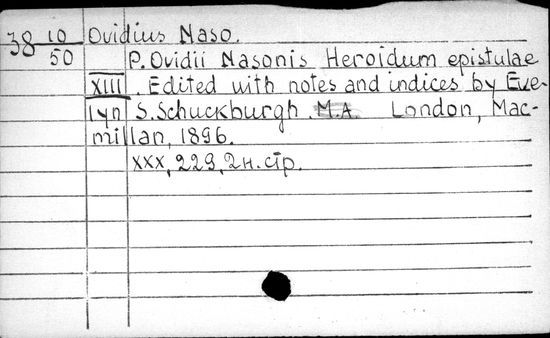 38 10 Ovidius Naso.
50 P. Ovidii Nasonis Heroidum epistulae
XIII. Edited with notes and indices by Eve-
lyn S. Schuckburgh. M.A. London, Mac-
millan, 1896.
xxx, 223, 2н. стр.